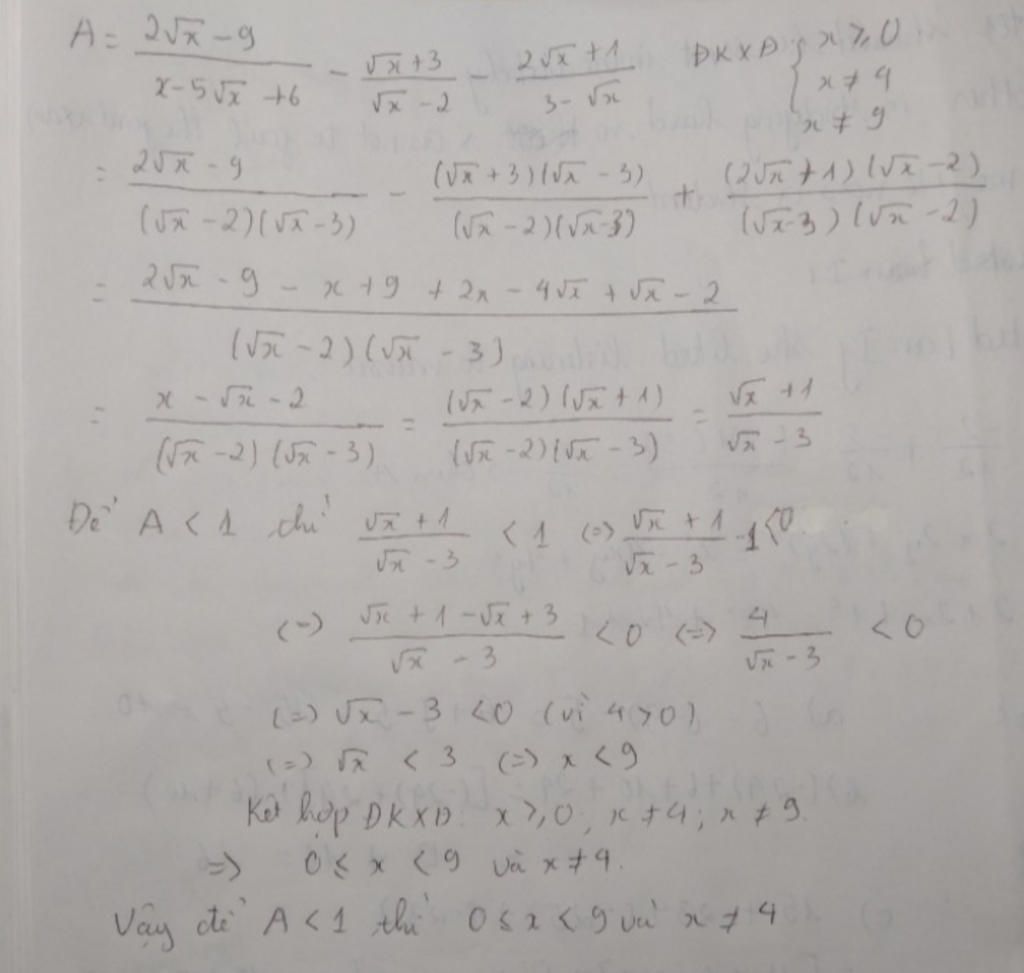 A = (2√x - 9)/(x - 5√x + 6) - (√x + 3)/(√x - 2) - (2√x + 1)/(3 - √x) ĐKXĐ { x ≥ 0
x ≠ 4
x ≠ 9
= (2√x - 9)/((√x - 2)(√x - 3)) - ((√x + 3)(√x - 3))/((√x - 2)(√x - 3)) + ((2√x + 1)(√x - 2))/((√x - 3)(√x - 2))
= (2√x - 9 - x + 9 + 2x - 4√x + √x - 2)/((√x - 2)(√x - 3))
= (x - √x - 2)/((√x - 2)(√x - 3)) = ((√x - 2)(√x + 1))/((√x - 2)(√x - 3)) = (√x + 1)/(√x - 3)
Để A < 1 thì (√x + 1)/(√x - 3) < 1 (=) (√x + 1)/(√x - 3) - 1 < 0
(=) (√x + 1 - √x + 3)/(√x - 3) < 0 (=) 4/(√x - 3) < 0
(=) √x - 3 < 0 (vì 4 > 0)
(=) √x < 3 (=) x < 9
Kết hợp ĐKXĐ: x ≥ 0; x ≠ 4; x ≠ 9.
=> 0 ≤ x < 9 và x ≠ 4.
Vậy để A < 1 thì 0 ≤ x < 9 và x ≠ 4